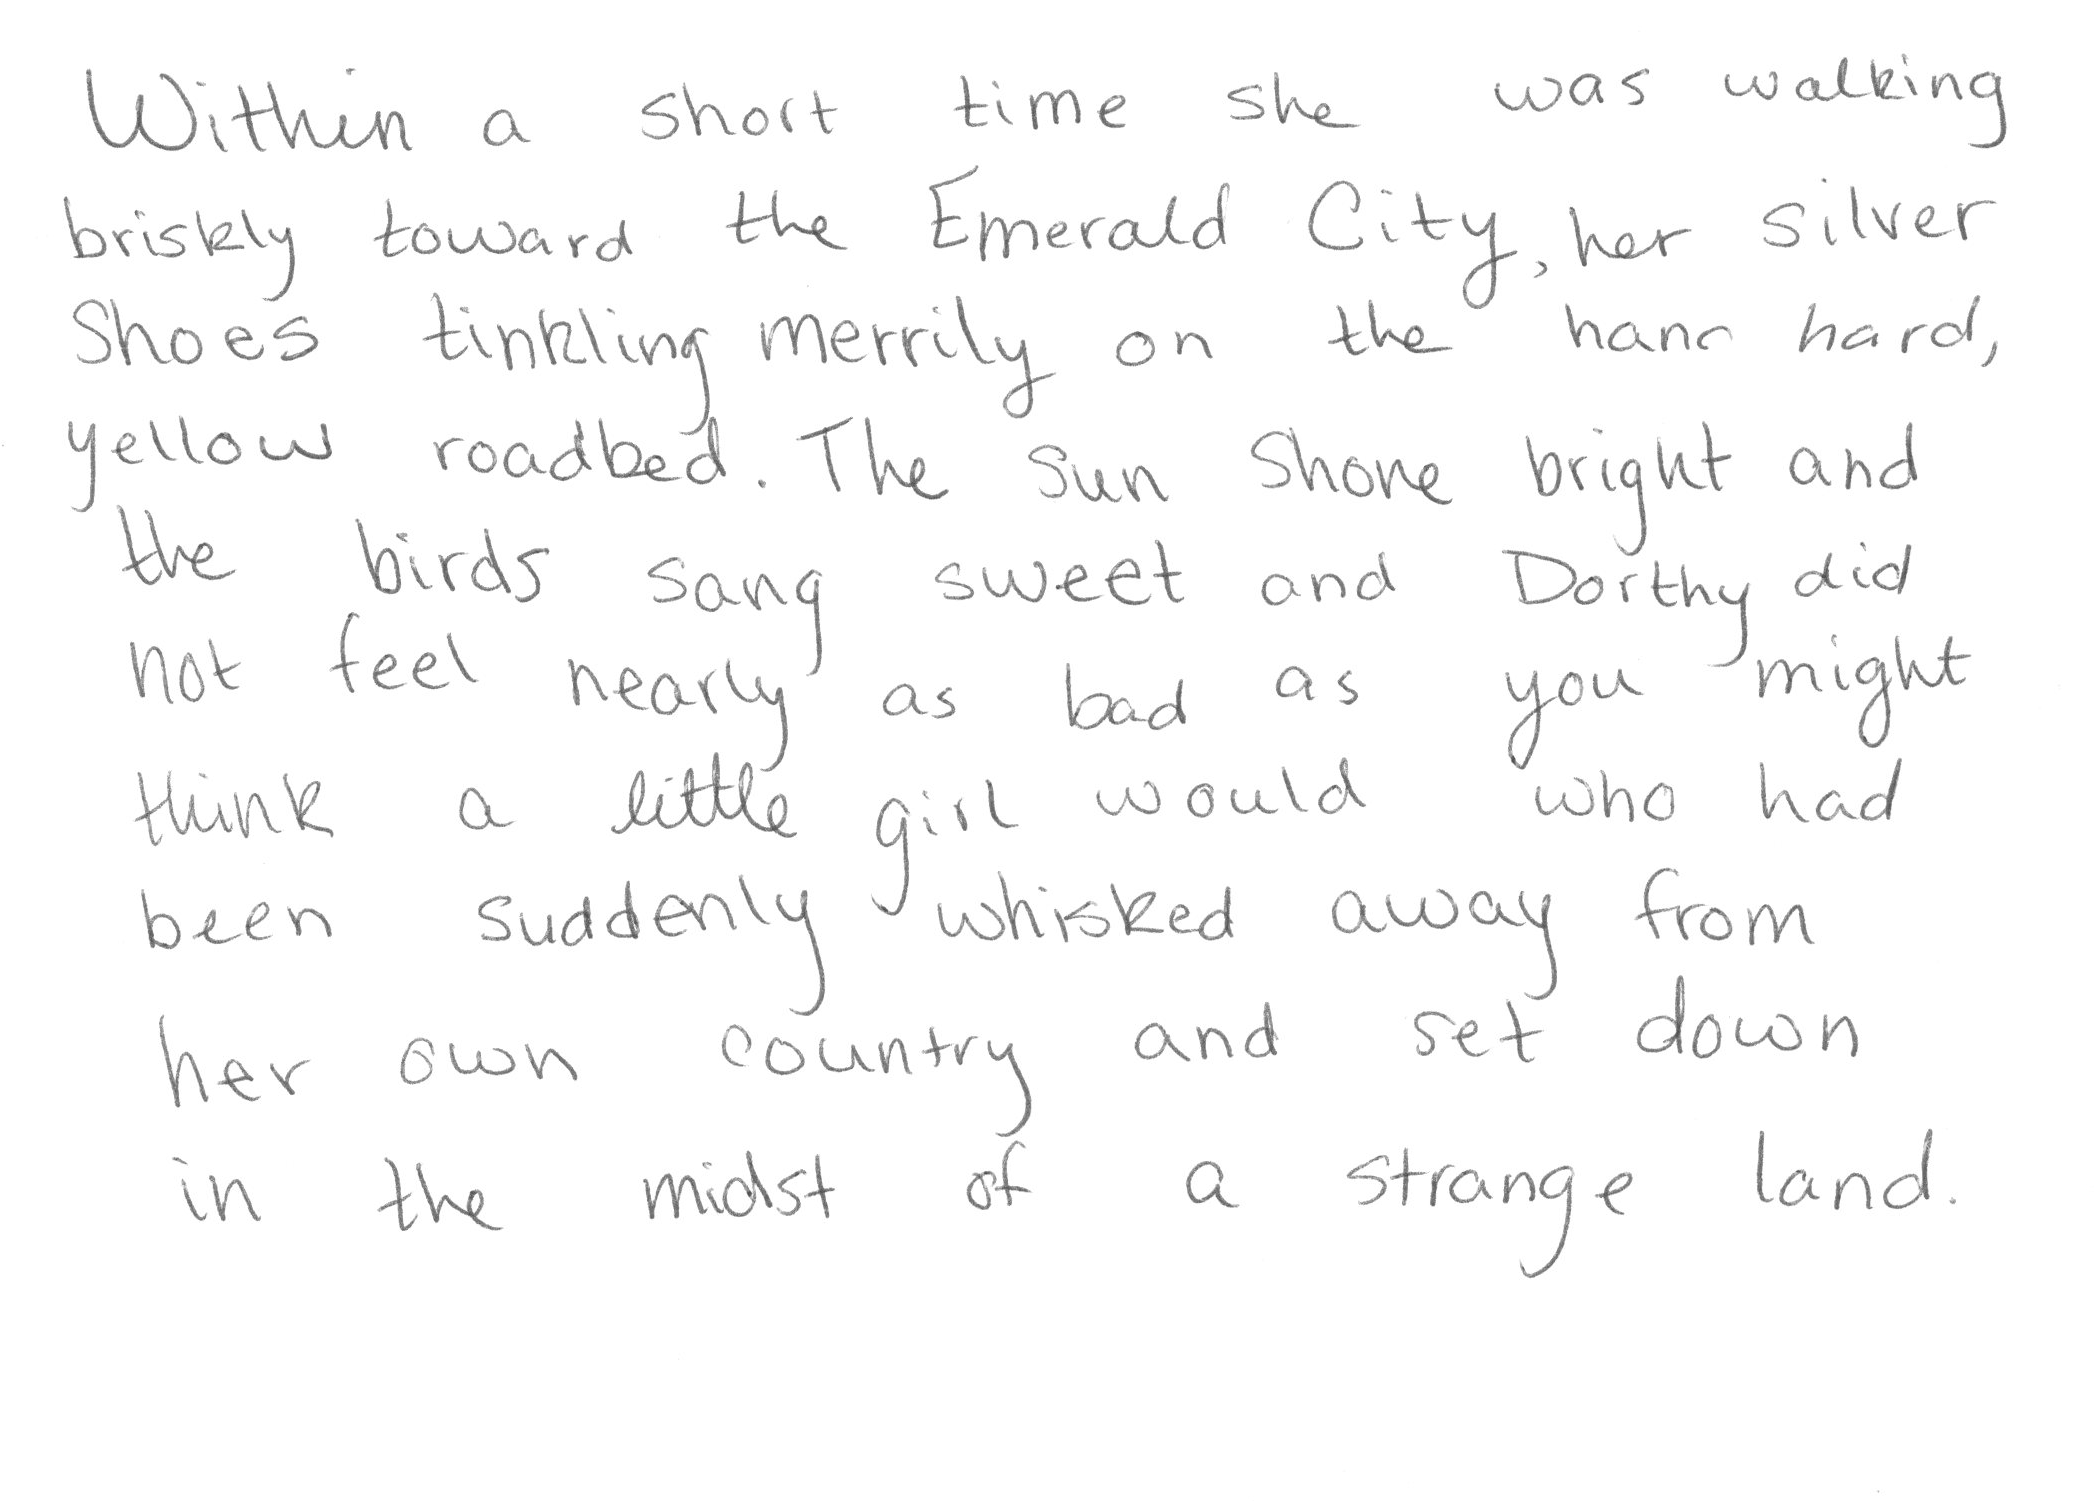 Within a short time she was walking
briskly toward the Emerald City, her silver
Shoes tinkling merrily on the hand hard,
yellow roadbed. The Sun Shone bright and
the birds sang sweet and Dorthy did
not feel nearly as bad as you might
think a little girl would who had
been suddenly whisked away from
her own country and set down
in the midst of a strange land.